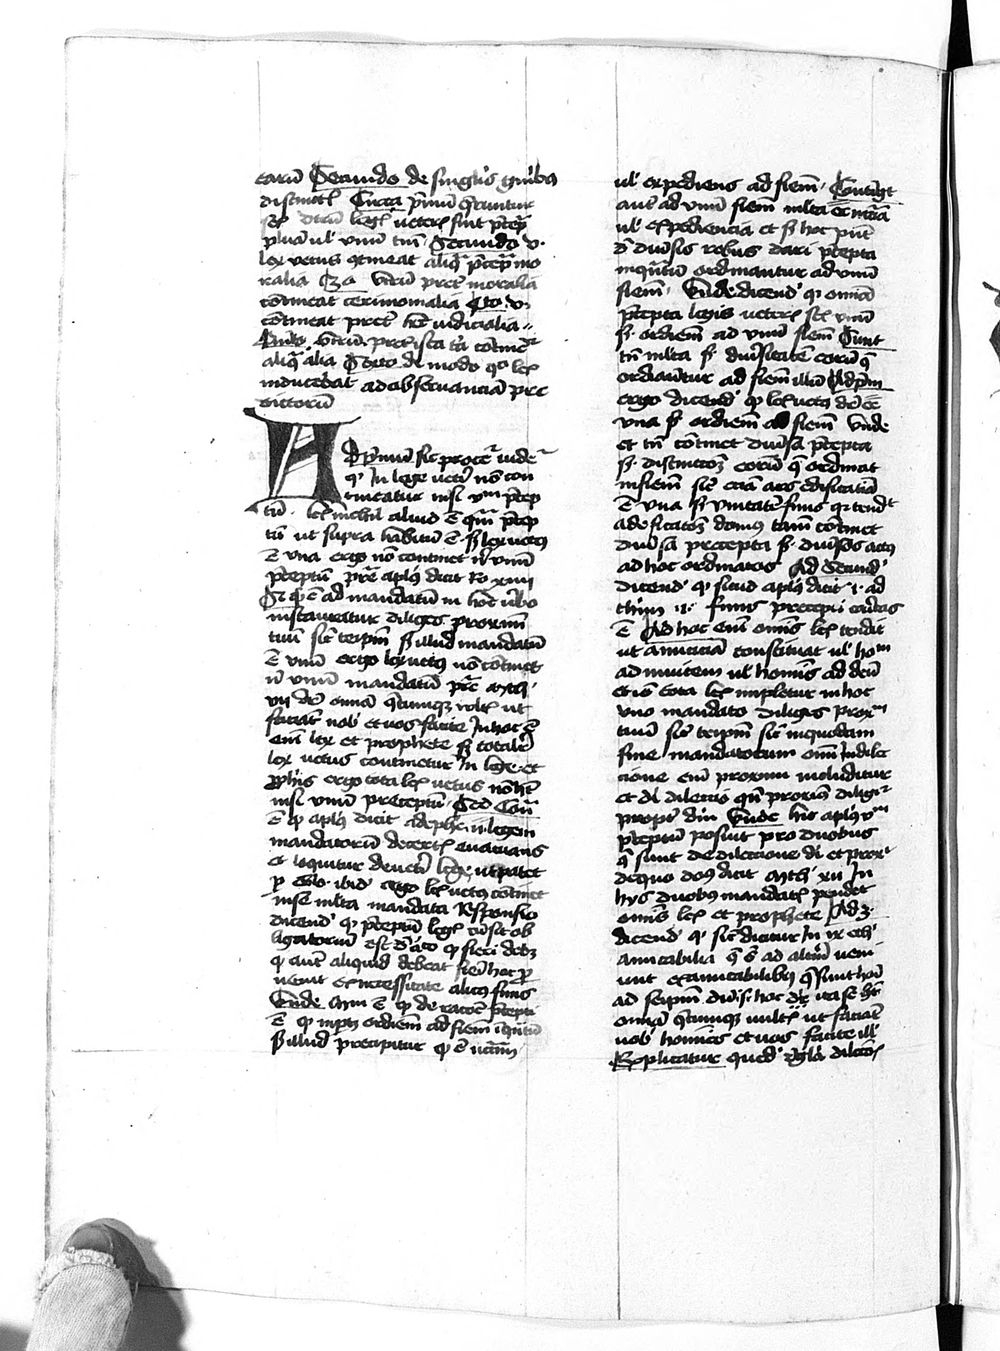 earum Secundo de singulis generibus
distinctis Circa primum queruntur
sex Utrum legis veteris sint precepta
plura vel unum tantum Secundo utrum
lex vetus contineat aliqua precepta mo
ralia 3o utrum preter moralia
contineat cerimonialia Quarto utrum
contineat preter hec iudicialia
Quinto utrum preter ista tria contineat
aliqua alia Sexto de modo quo lex
inducebat ad observanciam pre
dictorum
Ad primum sic proceditur videtur
quod in lege veteri non con
tineatur nisi unum precep
tum lex enim nichil aliud est quam precep
tum ut supra habitum est sed lex vetus
est una ergo non continet nisi unum
preceptum preterea apostolus dicit Ro xiii
Si quod est ad mandatum in hoc verbo
instauratur diliges proximum
tuum sicut teipsum sed illud mandatum
est unum ergo lex vetus non continet
nisi unum mandatum preterea Math
vii dicitur omnia quecumque vultis ut
faciant vobis et vos facite In hoc est
enim lex et prophete sed tota
lex vetus continetur in lege et
prophetis ergo tota lex vetus non habet
nisi unum preceptum Sed contra
est quod apostolus dicit ad eph ii legem
mandatorum decretis evacuans
et loquitur de veteri lege ut patet
per glo ibid ergo lex vetus continet
in se multa mandata Responsio
dicendum quod preceptum legis cum sit ob
ligatorium est de aliquo quod fieri debet
quod autem aliquid debeat fieri hoc pro
venit ex necessitate alicuius finis
Unde manifestum est quod de racione precepti
est quod importet ordinem ad finem inquantum
scilicet illud precipitur quod est necessarium
vel expediens ad finem Contingit
autem ad unum finem multa esse necessaria
vel expediencia et secundum hoc possunt
de diversis rebus dari precepta
inquantum ordinantur ad unum
finem Unde dicendum quod omnia
precepta legis veteris sunt unum
secundum ordinem ad unum finem Sunt
tamen multa secundum diversitatem eorum que
ordinantur ad finem illum Ad primum
ergo dicendum quod lex vetus dicitur esse
una secundum ordinem ad finem unde
et tamen continet diversa precepta
secundum distinctionem eorum que ordinat
in finem sicut etiam ars edificativa
est una secundum unitatem finis quia tendit
ad edificationem domus tamen continet
diversa precepta secundum diversos actus
ad hoc ordinatos Ad secundum
dicendum quod sicut apostolus dicit 1 ad
thim 1 finis precepti caritas
est Ad hoc enim omnis lex tendit
ut amiciciam constituat vel hominum
ad invicem vel hominis ad deum
et ideo tota lex impletur in hoc
uno mandato diliges proximum
tuum sicut teipsum sicut in quodam
fine mandatorum omnium In dilec
cione enim proximi includitur
et dei dilectio quando proximus diligitur
propter deum Unde hic apostolus unum
preceptum posuit pro duobus
que sunt de dilectione dei et proximi
de quo deus dicit Math xxii In
hiis duobus mandatis pendet
omnis lex et prophete Ad 3
dicendum quod sicut dicitur in ix ethi
amicabilia que sunt ad alterum veni
unt ex amicabilibus que sunt homini
ad seipsum dum scilicet hoc dicitur ita se habet
omnia quecumque vultis ut faciant
vobis homines et vos facite illis
Explicatur quedam regula dilectionis